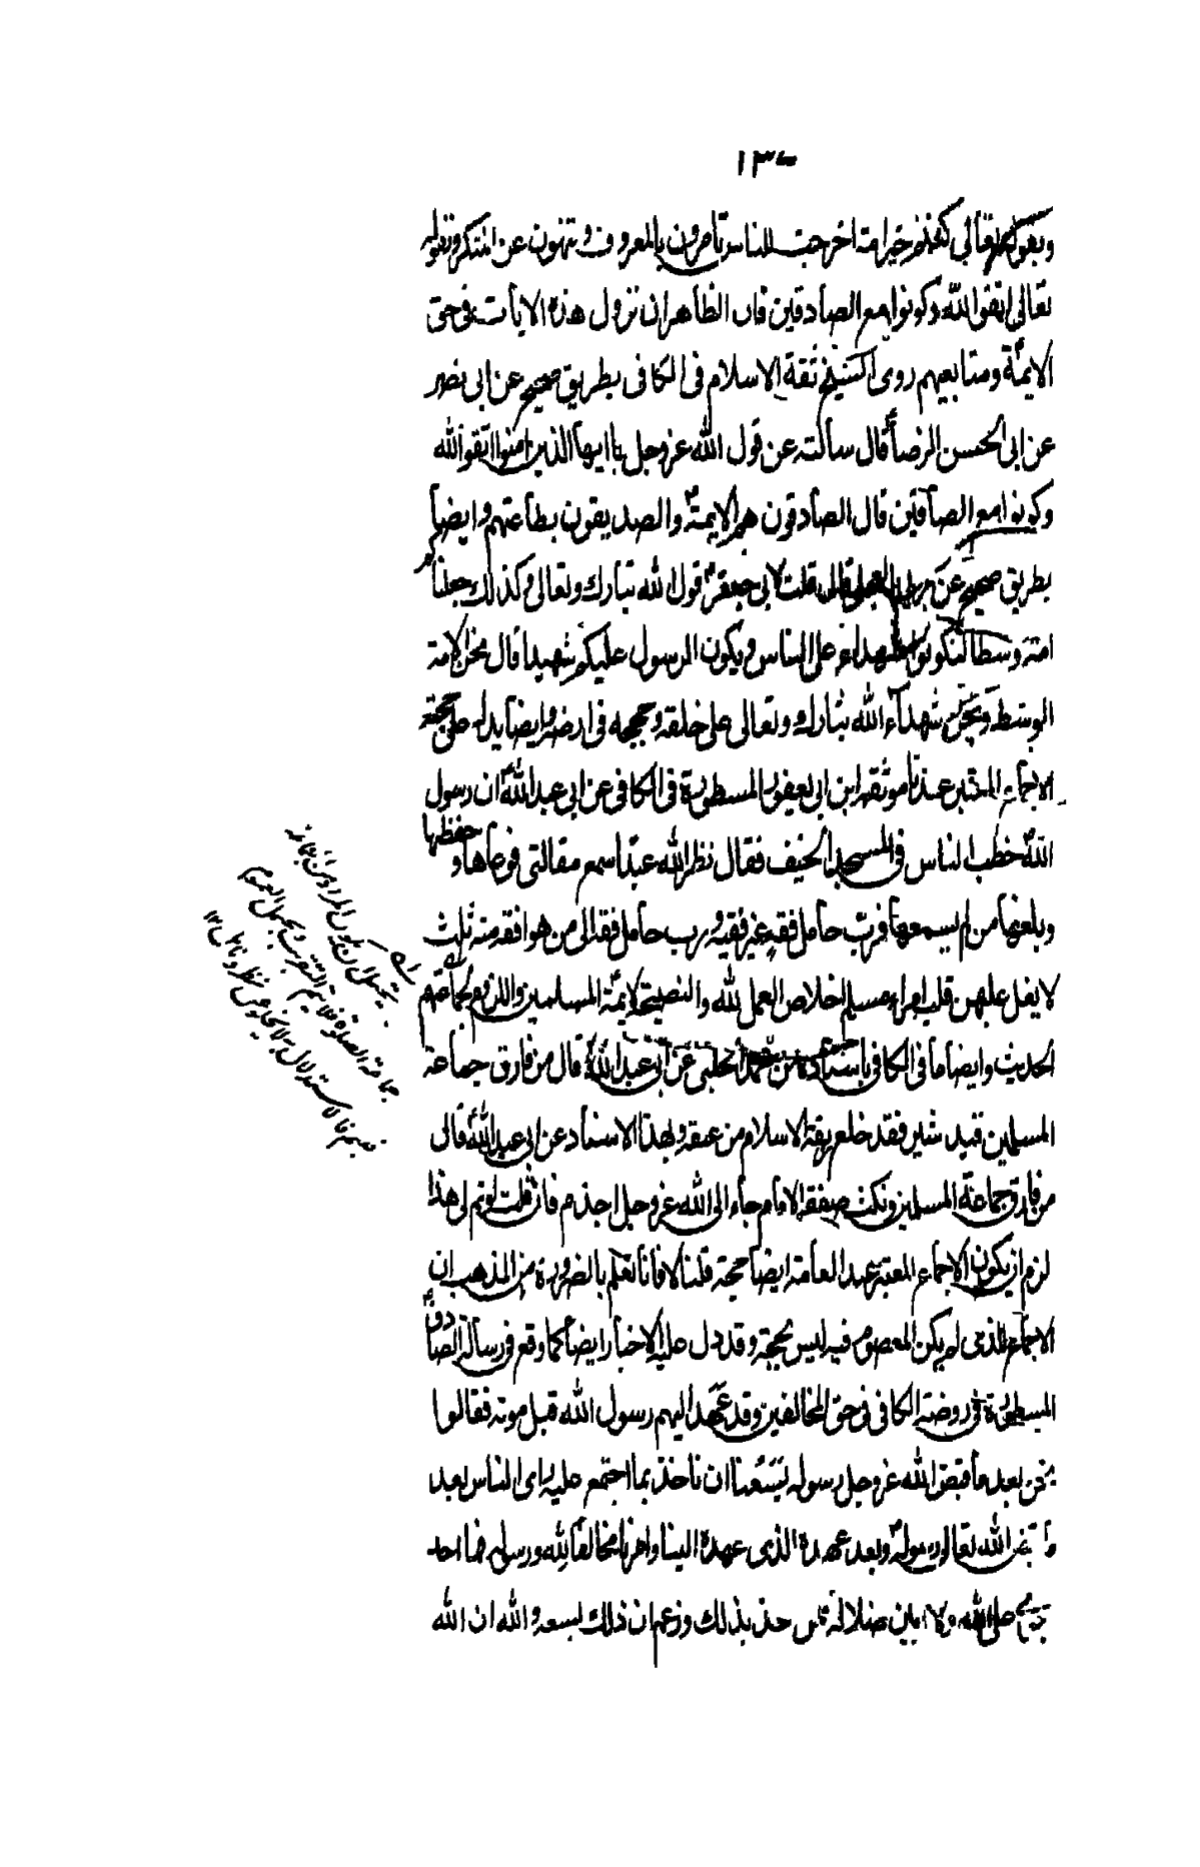 ١٣٠
وبقوله تعالى كنتم خير امة اخرجت للناس تأمرون بالمعروف وتنهون عن المنكر وبقوله
تعالى اتقوا الله وكونوا مع الصادقين فان الظاهر ان نزول هذه الايات في حق
الايمة ومتابعيهم روى الشيخ ثقة الاسلام في الكافي بطريق صحيح عن ابي نصر
عن ابي الحسن الرضا قال سالته عن قول الله عز وجل يا ايها الذين امنوا اتقوا الله
وكونوا مع الصادقين قال الصادقون هم الايمة والصديقون بطاعتهم وايضا
بطريق صحيح عن بريد العجلي قال قلت لابي جعفر قول الله تبارك وتعالى وكذلك جعلناكم
امة وسطا لتكونوا شهداء على الناس ويكون الرسول عليكم شهيدا قال نحن الامة
الوسط ونحن شهداء الله تبارك وتعالى على خلقه وحججه في ارضه وايضا يدل على حجية
الاجماع المعتبر عندنا موثقة ابن ابي يعفور المسطورة في الكافي عن ابي عبد الله ان رسول
الله خطب الناس في المسجد الخيف فقال نظر الله عبدا سمع مقالتي فوعاها وحفظها
وبلغها من لم يسمعها فرب حامل فقه غير فقيه ورب حامل فقه الى من هو افقه منه ثلث
لا يغل عليهن قلب امرء مسلم اخلاص العمل لله والنصيحة لايمة المسلمين واللزوم لجماعتهم
الحديث وايضا ما في الكافي باسناده عن محمد الحلبي عن ابي عبد الله قال من فارق جماعة
المسلمين قيد شبر فقد خلع ربقة الاسلام من عنقه وبهذا الاسناد عن ابي عبد الله قال
من فارق جماعة المسلمين ونكث صفقة الامام جاء الى الله عز وجل اجذم فان قلت لو تم لى هذا
لزم ان يكون الاجماع المعتبر عند العامة ايضا حجة قلنا لا فانا نعلم بالضرورة من المذهب ان
الاجماع الذي لم يكن المعصوم فيه ليس بحجة وقد دل عليه الاخبار ايضا كما وقع في رسالة الصادق
المسطورة في روضة الكافي في حق المخالفين وقد عهد اليهم رسول الله قبل موته فقالوا
نحن بعد ما قبض الله عز وجل رسوله يسعنا ان ناخذ بما اجتمع عليه راى الناس بعد
ما قبض الله تعالى رسوله وبعد عهده الذي عهده الينا وامرنا به مخالفا لله ورسوله فما احد
اجرى على الله ولا ابين ضلالة ممن اخذ بذلك وزعم ان ذلك يسعه والله ان الله
يحتمل ان يكون المراد من جماعته
جماعة الصلوة فلا يتم التقريب ويحتمل العموم
فالاستدلال به لا يخلو عن نظر